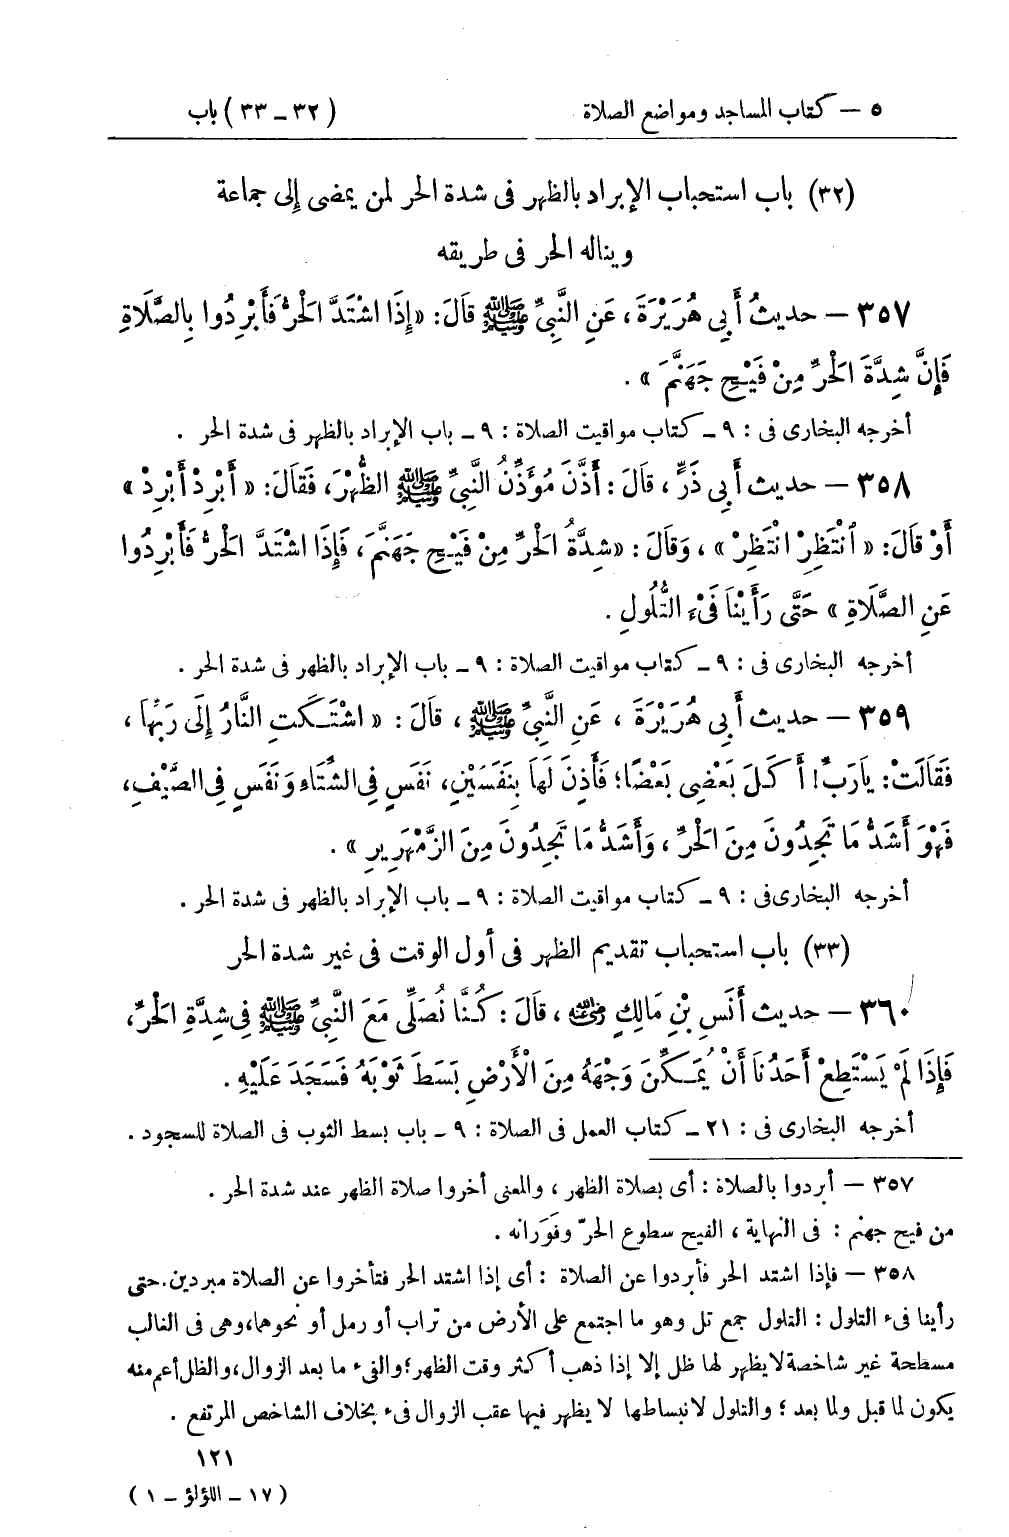 ٥ — كتاب المساجد ومواضع الصلاة (٣٢ – ٣٣) باب
(٣٢) باب استحباب الإبراد بالظهر فى شدة الحر لمن يمضى إلى جماعة
ويناله الحر فى طريقه
٣٥٧ — حديثُ أَبِي هُرَيْرَةَ ، عَنِ النَّبِيِّ ﷺ قَالَ : « إِذَا اشْتَدَّ الْحَرُّ فَأَبْرِدُوا بِالصَّلَاةِ
فَإِنَّ شِدَّةَ الْحَرِّ مِنْ فَيْحِ جَهَنَّمَ » .
أخرجه البخارى فى : ٩ – كتاب مواقيت الصلاة : ٩ – باب الإبراد بالظهر فى شدة الحر .
٣٥٨ — حديث أَبِي ذَرٍّ ، قَالَ : أَذَّنَ مُؤَذِّنُ النَّبِيِّ ﷺ الظُّهْرَ ، فَقَالَ : « أَبْرِدْ أَبْرِدْ »
أَوْ قَالَ : « ٱنْتَظِرْ انْتَظِرْ » ، وَقَالَ : « شِدَّةُ الْحَرِّ مِنْ فَيْحِ جَهَنَّمَ ، فَإِذَا اشْتَدَّ الْحَرُّ فَأَبْرِدُوا
عَنِ الصَّلَاةِ » حَتَّى رَأَيْنَا فَيْءَ التُّلُولِ .
أخرجه البخارى فى : ٩ – كتاب مواقيت الصلاة : ٩ – باب الإبراد بالظهر فى شدة الحر .
٣٥٩ — حديث أَبِي هُرَيْرَةَ ، عَنِ النَّبِيِّ ﷺ ، قَالَ : « اشْتَكَتِ النَّارُ إِلَى رَبِّهَا ،
فَقَالَتْ : يَا رَبِّ! أَكَلَ بَعْضِى بَعْضًا ؛ فَأَذِنَ لَهَا بِنَفَسَيْنِ ، نَفَسٍ فِي الشِّتَاءِ وَنَفَسٍ فِي الصَّيْفِ ،
فَهْوَ أَشَدُّ مَا تَجِدُونَ مِنَ الْحَرِّ ، وَأَشَدُّ مَا تَجِدُونَ مِنَ الزَّمْهَرِيرِ » .
أخرجه البخارى فى : ٩ – كتاب مواقيت الصلاة : ٩ – باب الإبراد بالظهر فى شدة الحر .
(٣٣) باب استحباب تقديم الظهر فى أول الوقت فى غير شدة الحر
٣٦٠ — حديث أَنَسِ بْنِ مَالِكٍ رضي الله عنه ، قَالَ : كُنَّا نُصَلِّى مَعَ النَّبِيِّ ﷺ فِي شِدَّةِ الْحَرِّ ،
فَإِذَا لَمْ يَسْتَطِعْ أَحَدُنَا أَنْ يُمَكِّنَ وَجْهَهُ مِنَ الْأَرْضِ بَسَطَ ثَوْبَهُ فَسَجَدَ عَلَيْهِ .
أخرجه البخارى فى : ٢١ – كتاب العمل فى الصلاة : ٩ – باب بسط الثوب فى الصلاة للسجود .
٣٥٧ — أبردوا بالصلاة : أى بصلاة الظهر ، والمعنى أخروا صلاة الظهر عند شدة الحر .
من فيح جهنم : فى النهاية ، الفيح سطوع الحرّ وفَوَرانه .
٣٥٨ — فإذا اشتد الحر فأبردوا عن الصلاة : أى إذا اشتد الحر فتأخروا عن الصلاة مبردين . حتى
رأينا فىء التلول : التلول جمع تل وهو ما اجتمع على الأرض من تراب أو رمل أو نحوهما ، وهى فى الغالب
مسطحة غير شاخصة لا يظهر لها ظل إلا إذا ذهب أكثر وقت الظهر ؛ والفىء ما بعد الزوال ، والظل أعم منه
يكون لما قبل ولما بعد ؛ والتلول لانبساطها لا يظهر فيها عقب الزوال فىء بخلاف الشاخص المرتفع .
١٢١
( ١٧ – اللؤلؤ – ١ )